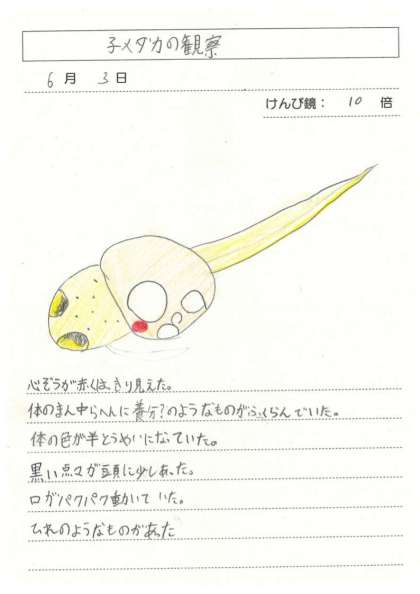 子メダカの観察
6月 3日
けんび鏡： 10 倍
心ぞうが赤くはっきり見えた。
体のまん中らへんに養分?のようなものがふくらんでいた。
体の色が半とうめいになっていた。
黒い点々が頭に少しあった。
口がパクパク動いていた。
ひれのようなものがあった